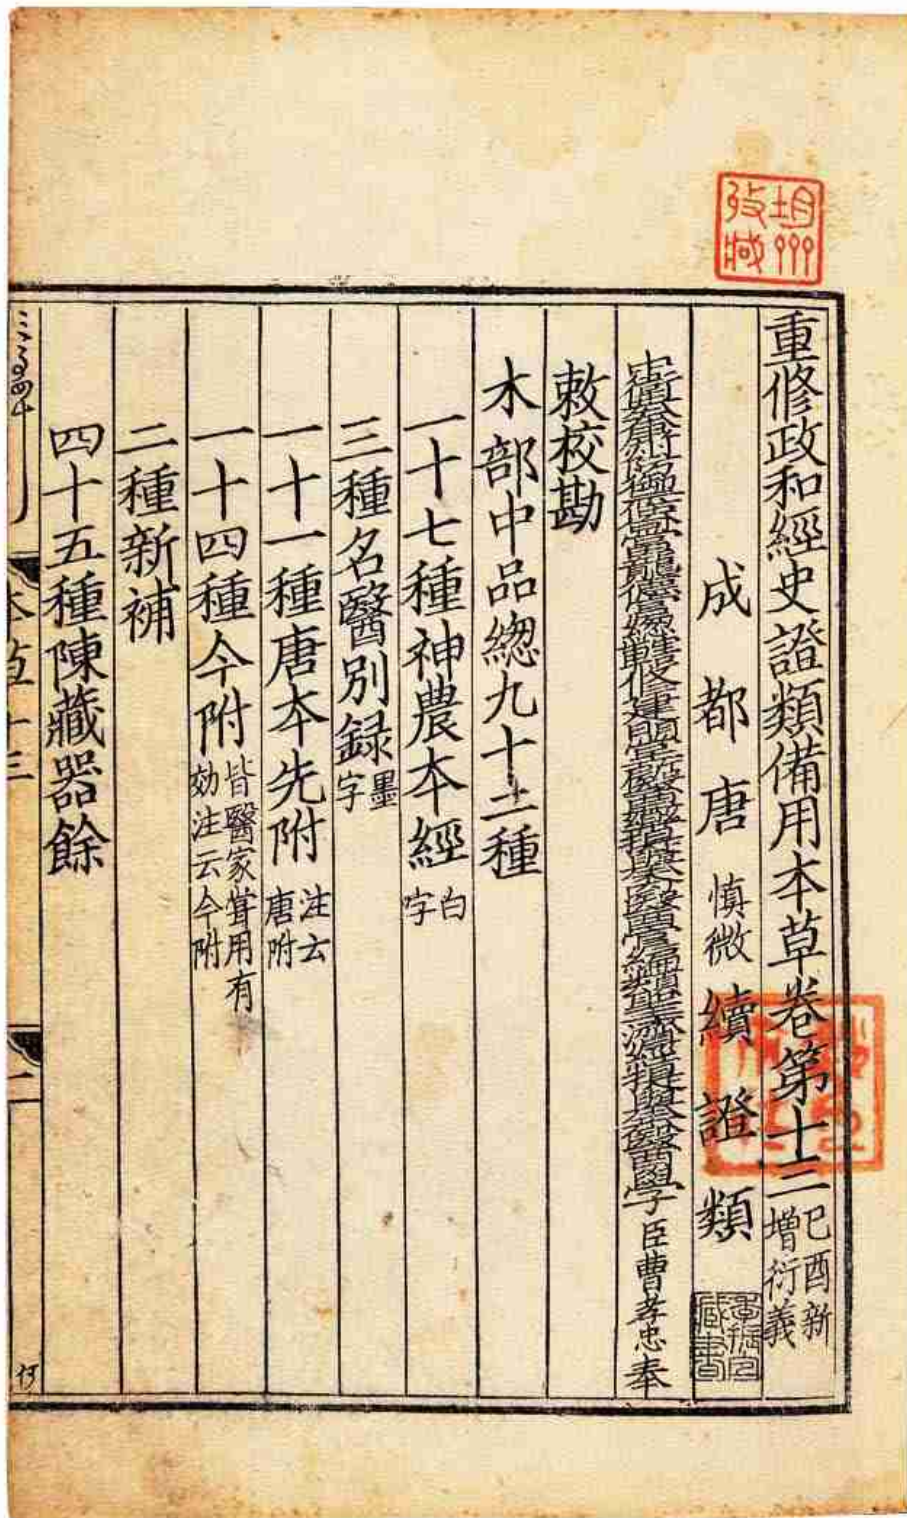 重修政和經史證類備用本草卷第十三 己酉新增衍義
成都唐慎微續證類
中衛大夫康州防禦使句當龍德宮總轄修建明堂所醫藥提舉入內醫官編類聖濟經提舉太醫學臣曹孝忠奉
敕校勘
木部中品緫九十二種
一十七種神農本經 白字
三種名醫別録 墨字
一十一種唐本先附 注云唐附
一十四種今附 皆醫家嘗用有効注云今附
二種新補
四十五種陳藏器餘
本草十三
二